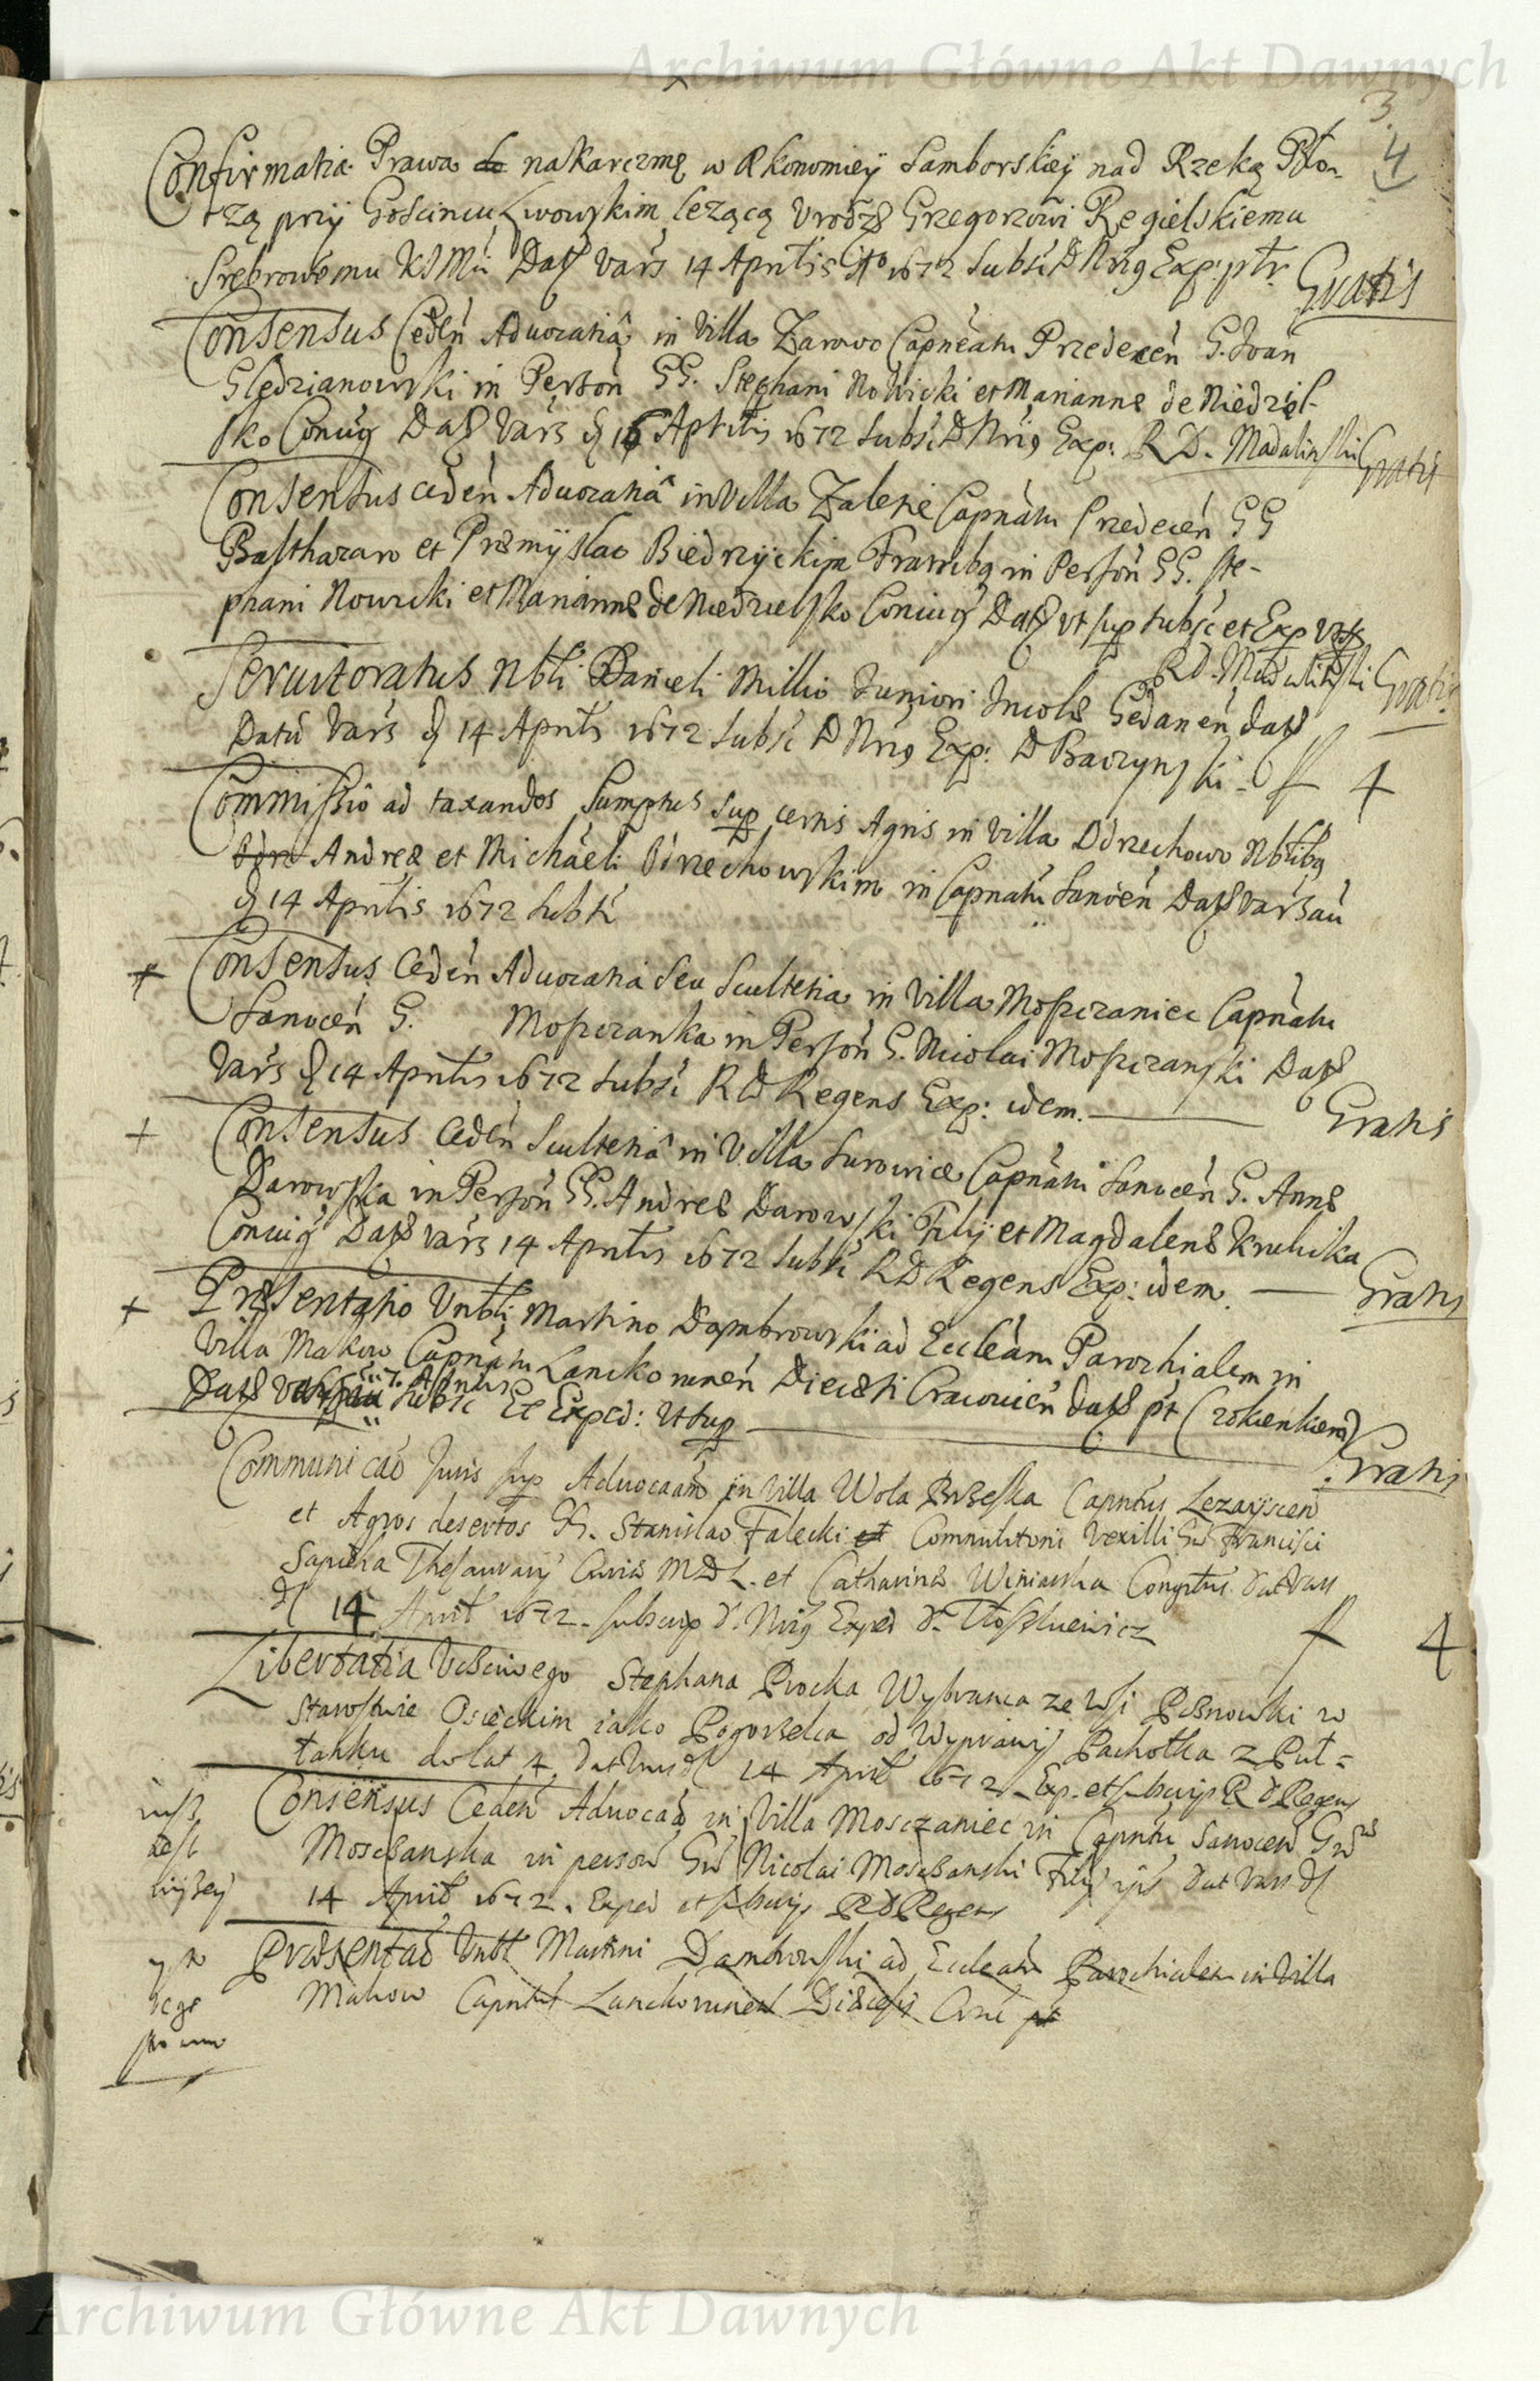 Archiwum Główne Akt Dawnych
3.
4
Confirmatia Prawa do na Karczmę w Ekonomiey Samborskiey nad Rzeką Pło-
rzą przy Goscincu Lwowskim lezącą Vrodz Grzegorzowi Regielskiemu
Srebrowemu KJMci Dat Vars 14 Aprilis Ao 1672 Subsc D Nrig Exp: ptr. Gratis
Consensus Ceden Advocatia in Villa Zarowo Capneatu Przedecen G. Joan
Gledzianowski in Person GG. Stephani Nowicki et Marianne de Niedziel-
sko Coniug Dat Vars d 16 Aprilis 1672 Subsc D Nrig Exp: R D. Madalinski Gratis
Consensus ceden Advocatia in Villa Zalesie Capnatu Przedecen GG
Balthazaro et Premyslao Biedrzyckim Fratribq in Person GG. Ste-
phani Nowicki et Marianne de Niedzielsko Coniug Dat vt sup subsc et Exp Vts
RD. Madalinski Gratis
Servitoratus Nbli Danieli Millio Juniori Incole Gedanen Dat
Datu Vars d 14 Aprilis 1672 Subsc D Nrig Exp: D Baczynski - f 4
Commissio ad taxandos Sumptus sup certis Agris in Villa Odrzechowo Nblibq
Odre Andreæ et Michaeli Odrzechowskim in Capnatu Sanocen Dat Varsau
d 14 Aprilis 1672 Subsc
+ Consensus Ceden Advocatia Seu Scultetia in Villa Moszczaniec Capnatu
Sanocen G. Moszczanka in Person G. Nicolai Moszczanski Dat
Vars d 14 Aprilis 1672 Subsc R D Regens Exp: idem. Gratis
+ Consensus Ceden Scultetia in Villa Surowica Capnatu Sanocen G. Anne
Darowska in Person GG. Andreæ Darowski Filij et Magdalene Krulicka
Coniug Dat Vars 14 Aprilis 1672 Subsc R D Regens Exp: idem. Gratis
+ Presentatio Vnbli Martino Dąmbrowski ad Eccleam Parochialem in
Villa Makow Capnatu Lanckorunen Diecesi Cracovien Dat pt
14 Aprilis
Dat Subsc Et Exped: Vt sup Gratis
Communicao Juris sup Advocaam in Villa Wola Brzeska Capntus Lezaiscen
et Agros desertos G. Stanislao Falecki et Commilitoni Vexilli Francisci
Sapieha Thesaurarij Curiæ M D L. et Catharinæ Winiarska Dat Vars
d 14 April 1672. subscrip d. Nrig Exped d. f 4
Libertatia Stephana Procka Wybranca ze Wsi w
Starostwie Osieckim iako Pogorzelca od Wyprawy Pachołka z Puł-
tanku do lat 4. Dat Vars d 14 April 1672. Exp. et subscrip R d Regens
Consensus Ceden Advocao in Villa Mosczaniec in Capntu Sanocen
Mosczanska in person Nicolai Mosczanski Filij Dat Vars d
14 April 1672. Exped et subscrip R d Regens
Præsentao Vnbl Martini Dambrowski ad Eccleam Parochialem in Villa
Makow Capntus Lanckorunen Diæcesis
Archiwum Główne Akt Dawnych